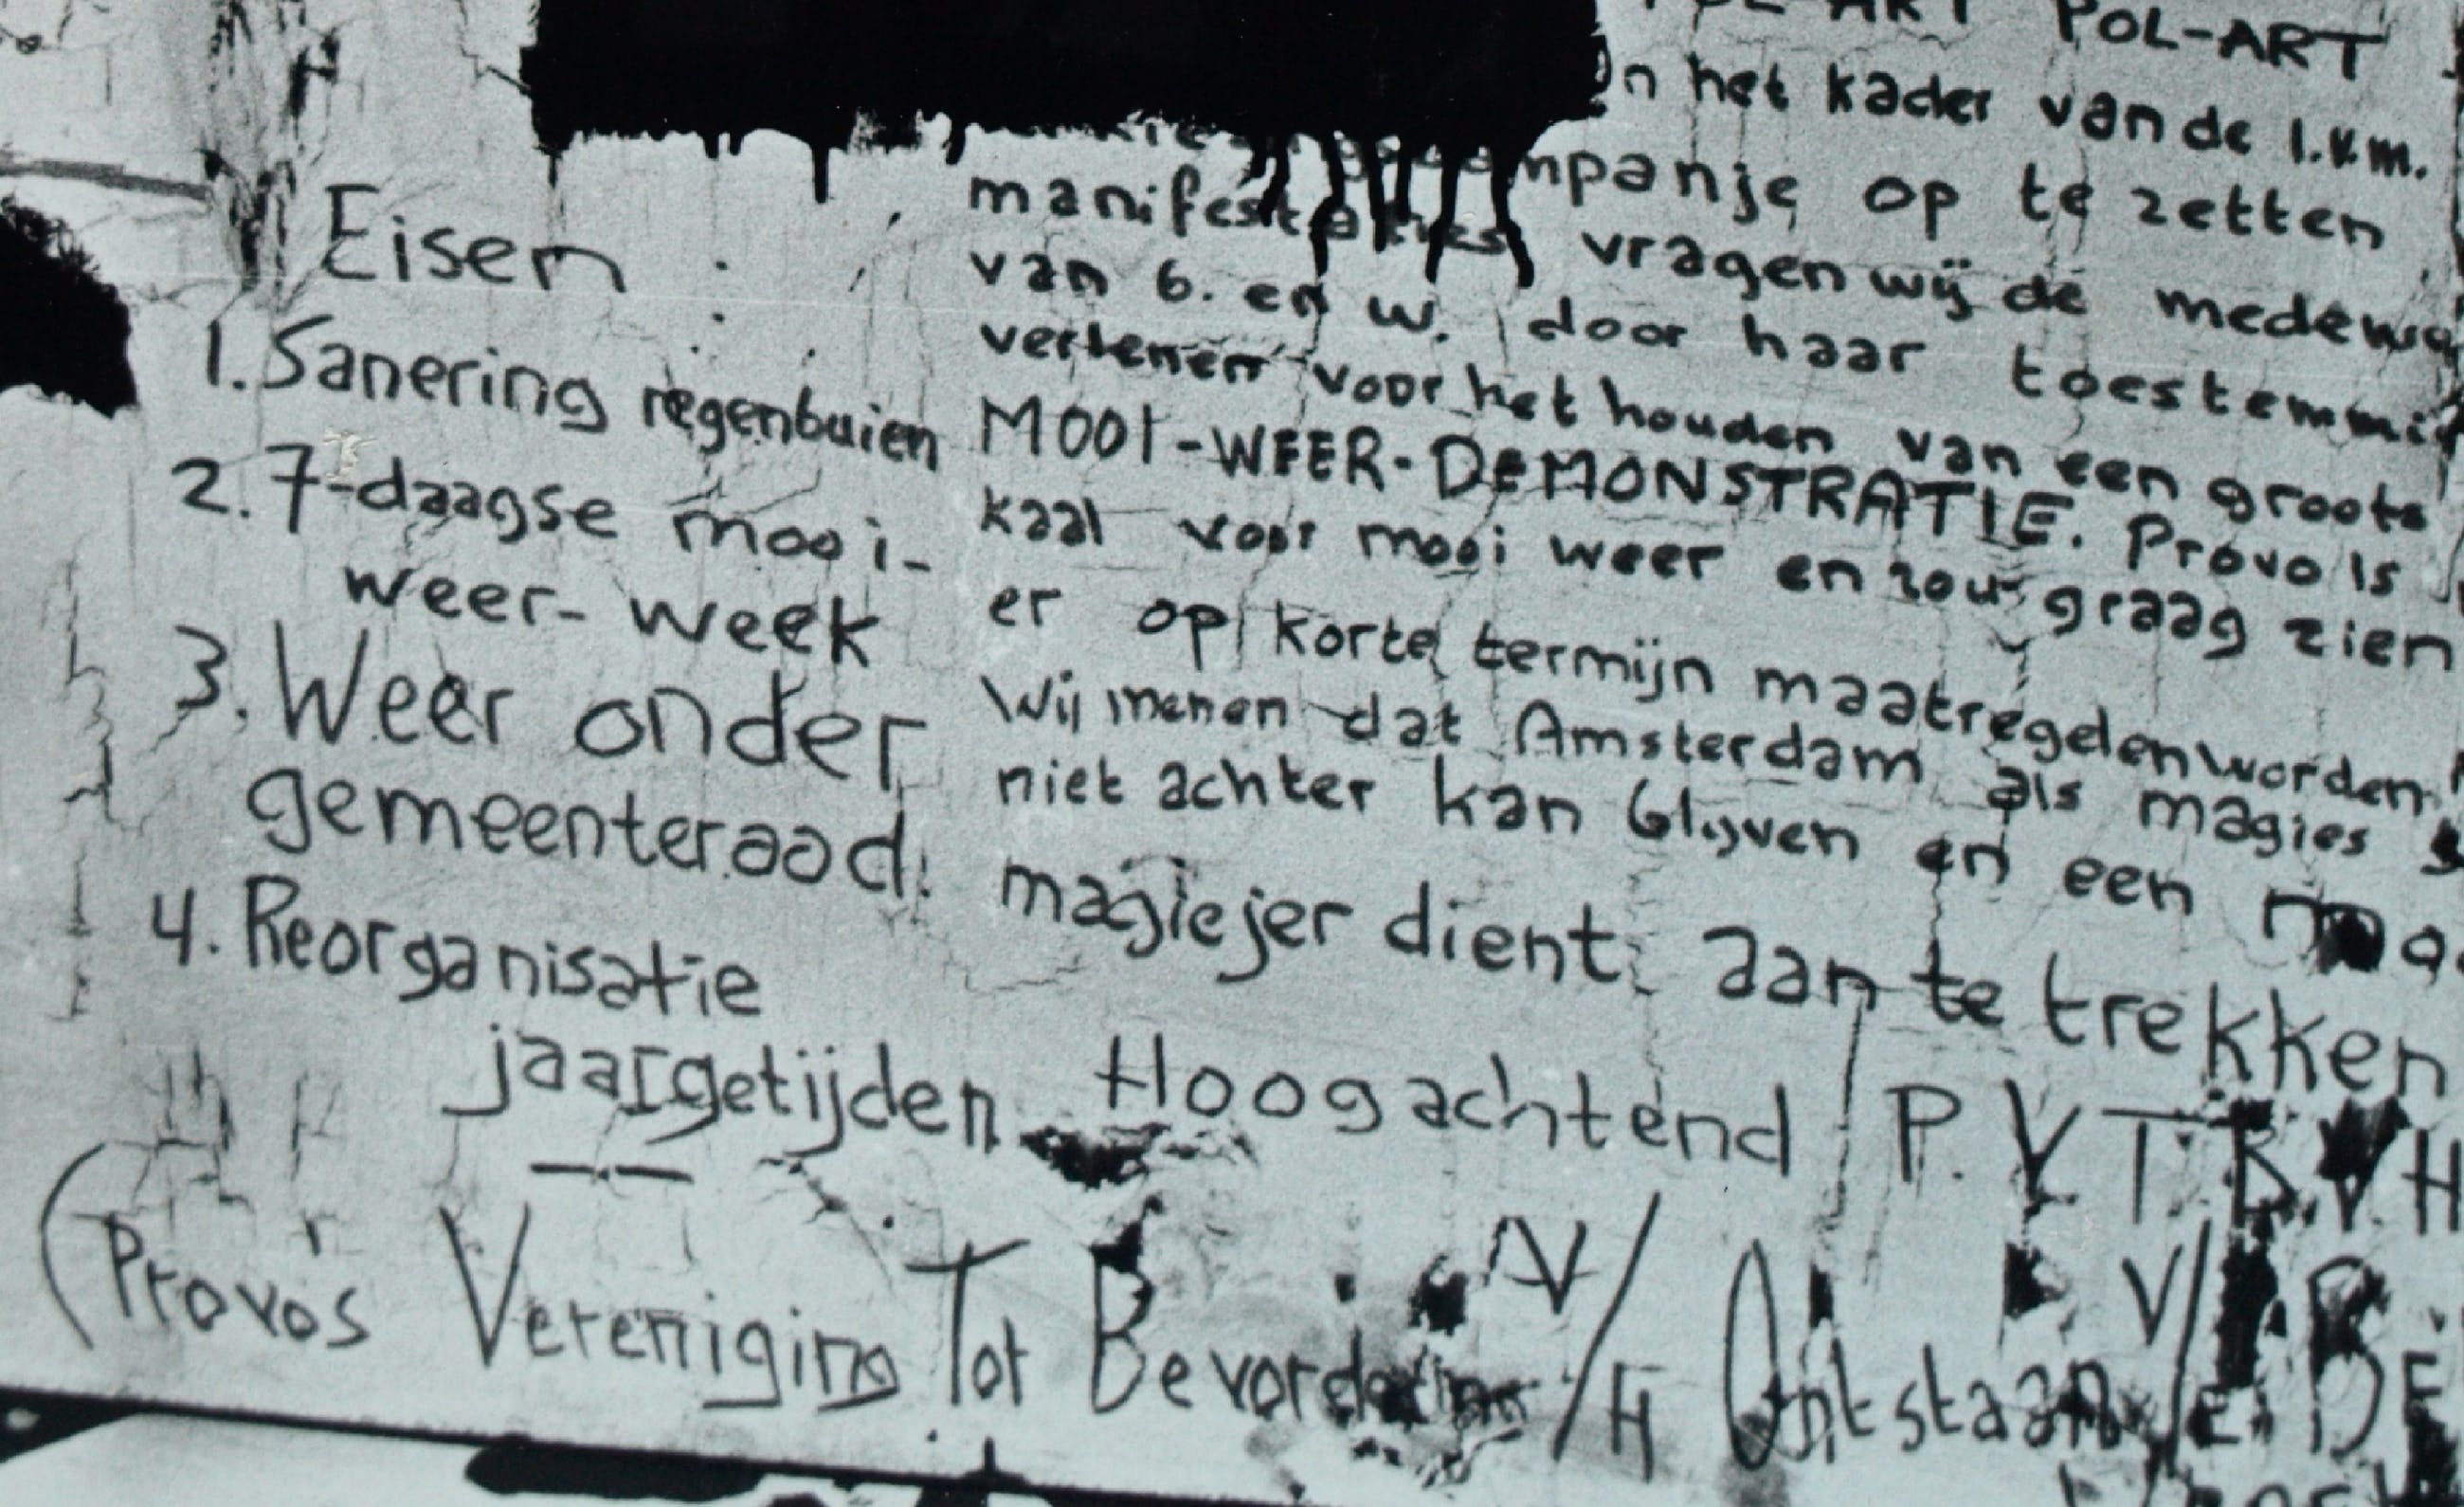 POL-ART
Eisen :
1. Sanering regenbuien
2. 7-daagse mooi-
weer-week
3. Weer onder
gemeenteraad
4. Reorganisatie
jaargetijden
In het kader van de I.V.M.
op te zetten
manifestaties vragen wij de
van B. en W. door haar
verlenen voor het houden van een groots
MOOI-WEER-DEMONSTRATIE. Provo is
kaal voor mooi weer en zou graag zien
er op korte termijn maatregelen worden
Wij menen dat Amsterdam als magies
niet achter kan blijven en een
magiejer dient aan te trekken
Hoogachtend P.V.T.B.V.H
(Provo's Vereniging Tot Bevordering V/H Ontstaan V/E